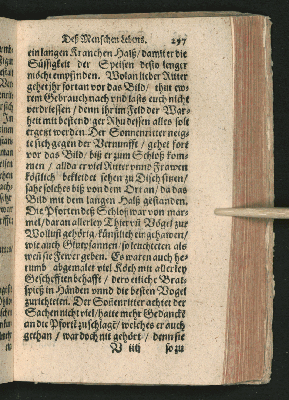 Deß Menschen Lebens. 297
ein langen Kranchen Halß / damit er die
Süssigkeit der Speisen desto lenger
möcht empfinden. Wolan lieber Ritter
gehet jhr fort an vor das Bild / thut ew-
rem Gebrauch nach vnd lasts euch nicht
verdriessen / denn jhr im Feld der War-
heit mit bestend' ger Rhu dessen alles solt
ergetzt werden. Der Sonnenritter neig-
te sich gegen der Vernunfft / gehet fort
vor das Bild / biß er zum Schloß kom-
men / allda er viel Ritter vnnd Frawen
köstlich bekleidet sehen zu Disch sitzen /
sahe solches biß von dem Ort an / da das
Bild mit dem langen Halß gestanden.
Die Pforten deß Schloß war von mar-
mel / daran allerley Thier vñ Vögel zur
Wollust gehörig / künstlich eingehawen /
wie auch Glutpfannen / so leuchteten als
weñ sie Fewer geben. Es waren auch he-
rumb abgemalet viel Köch mit allerley
Geschefften behafft / dero etliche Brat-
spieß in Händen vnnd die besten Vogel
zurichteten. Der Soñenritter achtet der
Sachen nicht viel / hatte mehr Gedanckē
an die Pfort zuschlagē / welches er auch
gethan / war doch nit gehört / denn sie
V iiij so zu